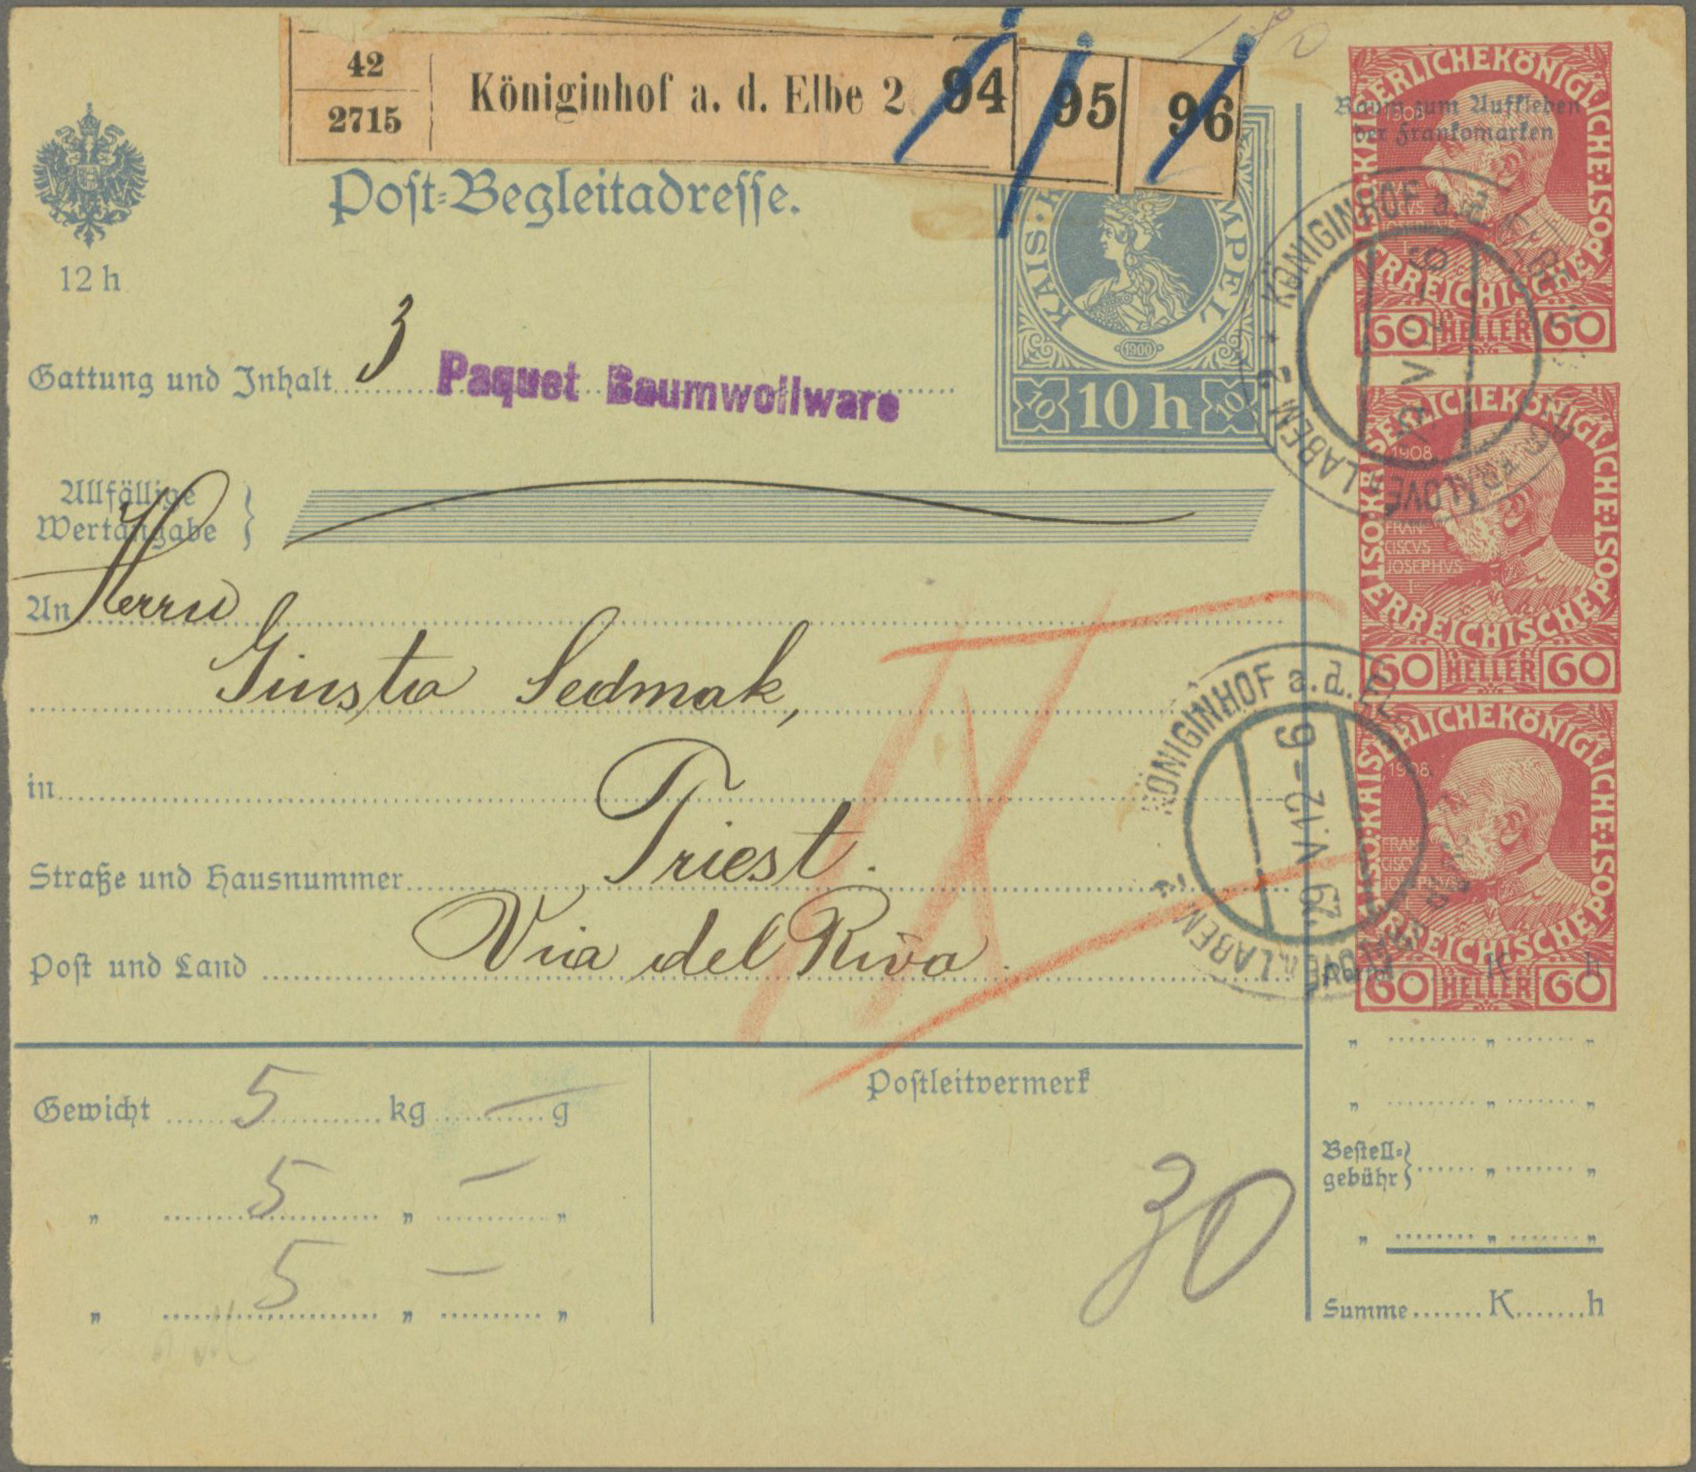 42
2715
Königinhof a. d. Elbe 2
94
95
96
180
Post-Begleitadresse.
12 h
KAIS. K. MPEL
1900
10 10 h 10
Raum zum Aufkleben
der Frankomarken
Gattung und Inhalt 3 Paquet Baumwollware
Allfällige
Wertangabe
An Herrn
Giusto Sedmak,
in Triest.
Straße und Hausnummer
Via del Riva.
Post und Land
KAISERLICHEKÖNIGLICHE ÖSTERREICHISCHE POST
1908
60 HELLER 60
KAISERLICHEKÖNIGLICHE ÖSTERREICHISCHE POST
1908
FRAN
CISCVS
JOSEPHVS
I.
60 HELLER 60
KAISERLICHEKÖNIGLICHE ÖSTERREICHISCHE POST
1908
FRAN
CISCVS
JOSEPHVS
60 HELLER 60
KÖNIGINHOF a.d. EL
29 V.12-6
LOVÉ N. LABEM 2
KÖNIGINHOF a.d. EL
29 V.12-6
LOVÉ N. LABEM 2
IX
Gewicht 5 kg — g
" 5 " — "
" 5 " — "
Postleitvermerk
30
K h
" " "
" " "
Bestell-
gebühr " "
" " "
Summe K h